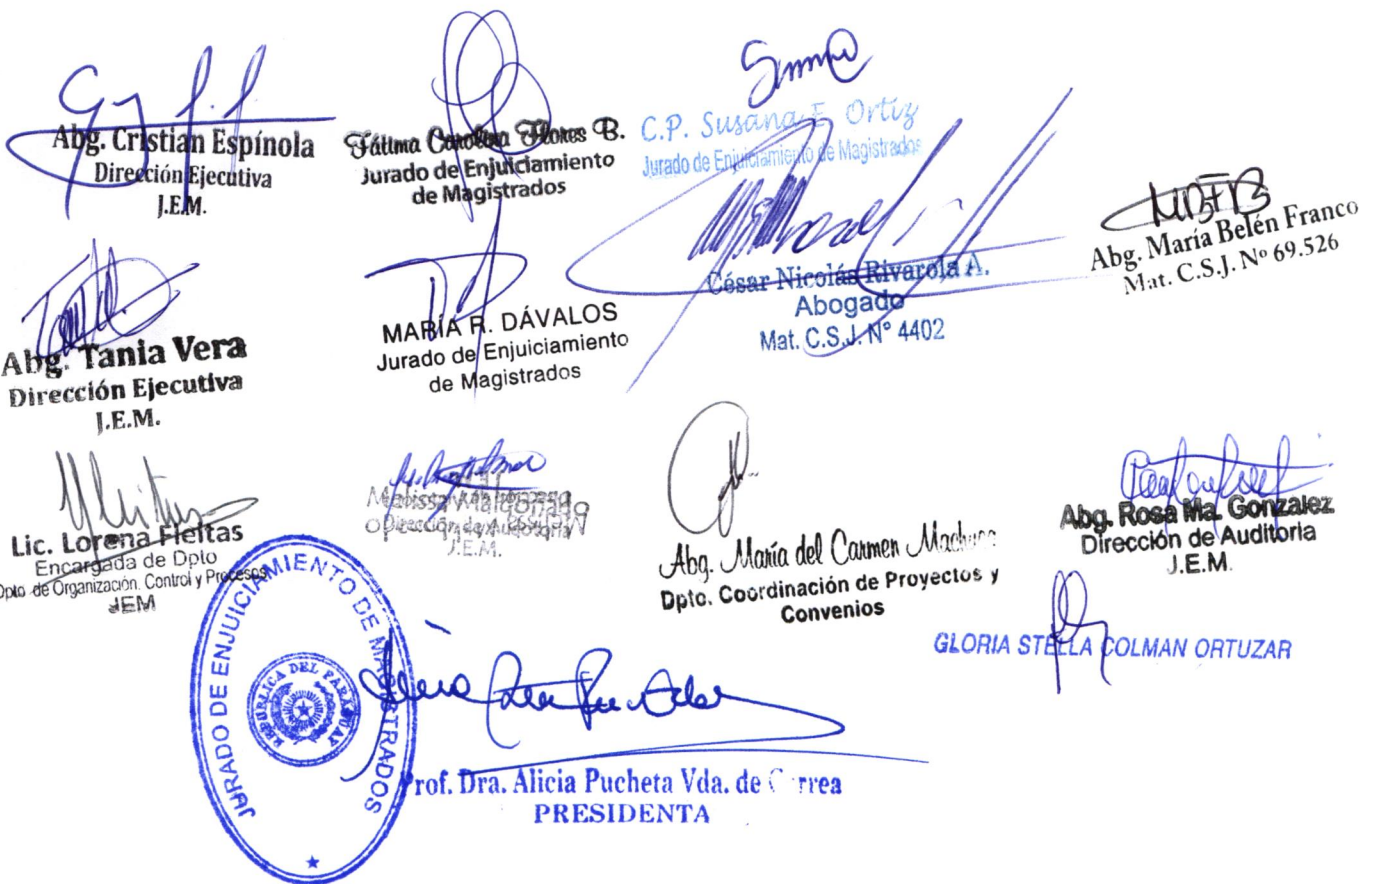 Abg. Cristian Espínola
Dirección Ejecutiva
J.E.M.
Fátima Carolina Flores B.
Jurado de Enjuiciamiento
de Magistrados
C.P. Susana E. Ortiz
Jurado de Enjuiciamiento de Magistrados
César Nicolás Rivarola A.
Abogado
Mat. C.S.J. Nº 4402
Abg. María Belén Franco
Mat. C.S.J. Nº 69.526
Abg. Tania Vera
Dirección Ejecutiva
J.E.M.
MARÍA R. DÁVALOS
Jurado de Enjuiciamiento
de Magistrados
Lic. Lorena Fleitas
Encargada de Dpto
Dpto de Organización, Control y Procesos
JEM
Melissa Maldonado
Dirección de Auditoria
J.E.M.
Abg. María del Carmen
Dpto. Coordinación de Proyectos y
Convenios
Abg. Rosa Ma. Gonzalez
Dirección de Auditoria
J.E.M.
GLORIA STELLA COLMAN ORTUZAR
JURADO DE ENJUICIAMIENTO DE MAGISTRADOS
REPÚBLICA DEL PARAGUAY
Prof. Dra. Alicia Pucheta Vda. de Correa
PRESIDENTA